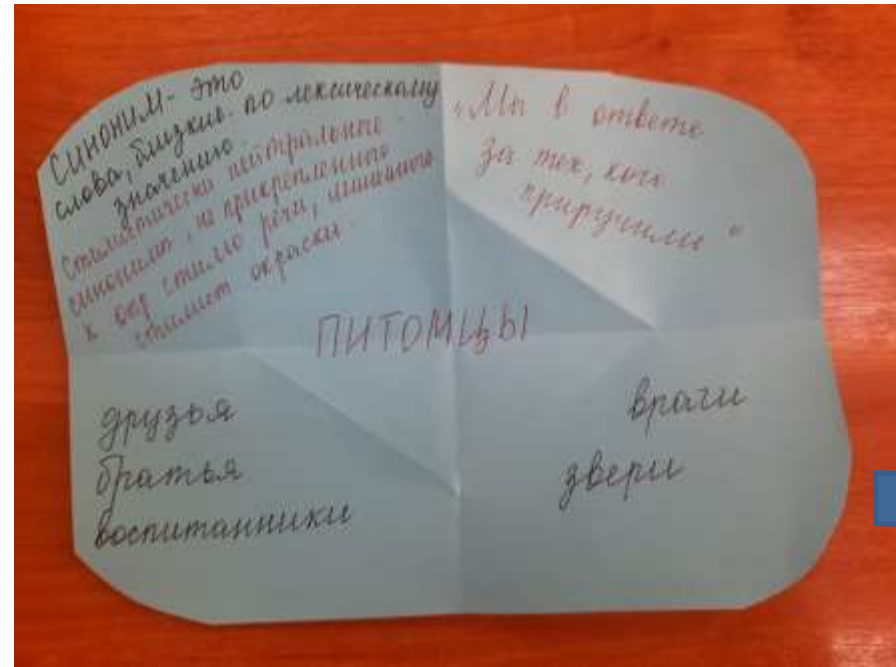 СИНОНИМ - это
слова, близкие по лексическому
значению.
Стилистически нейтрального
синонима, не прикрепленного
к опр стилю речи, лишенного
стилист окраски.
„Мы в ответе
за тех, кого
приручили"
ПИТОМЦЫ
друзья
братья
воспитанники
враги
звери